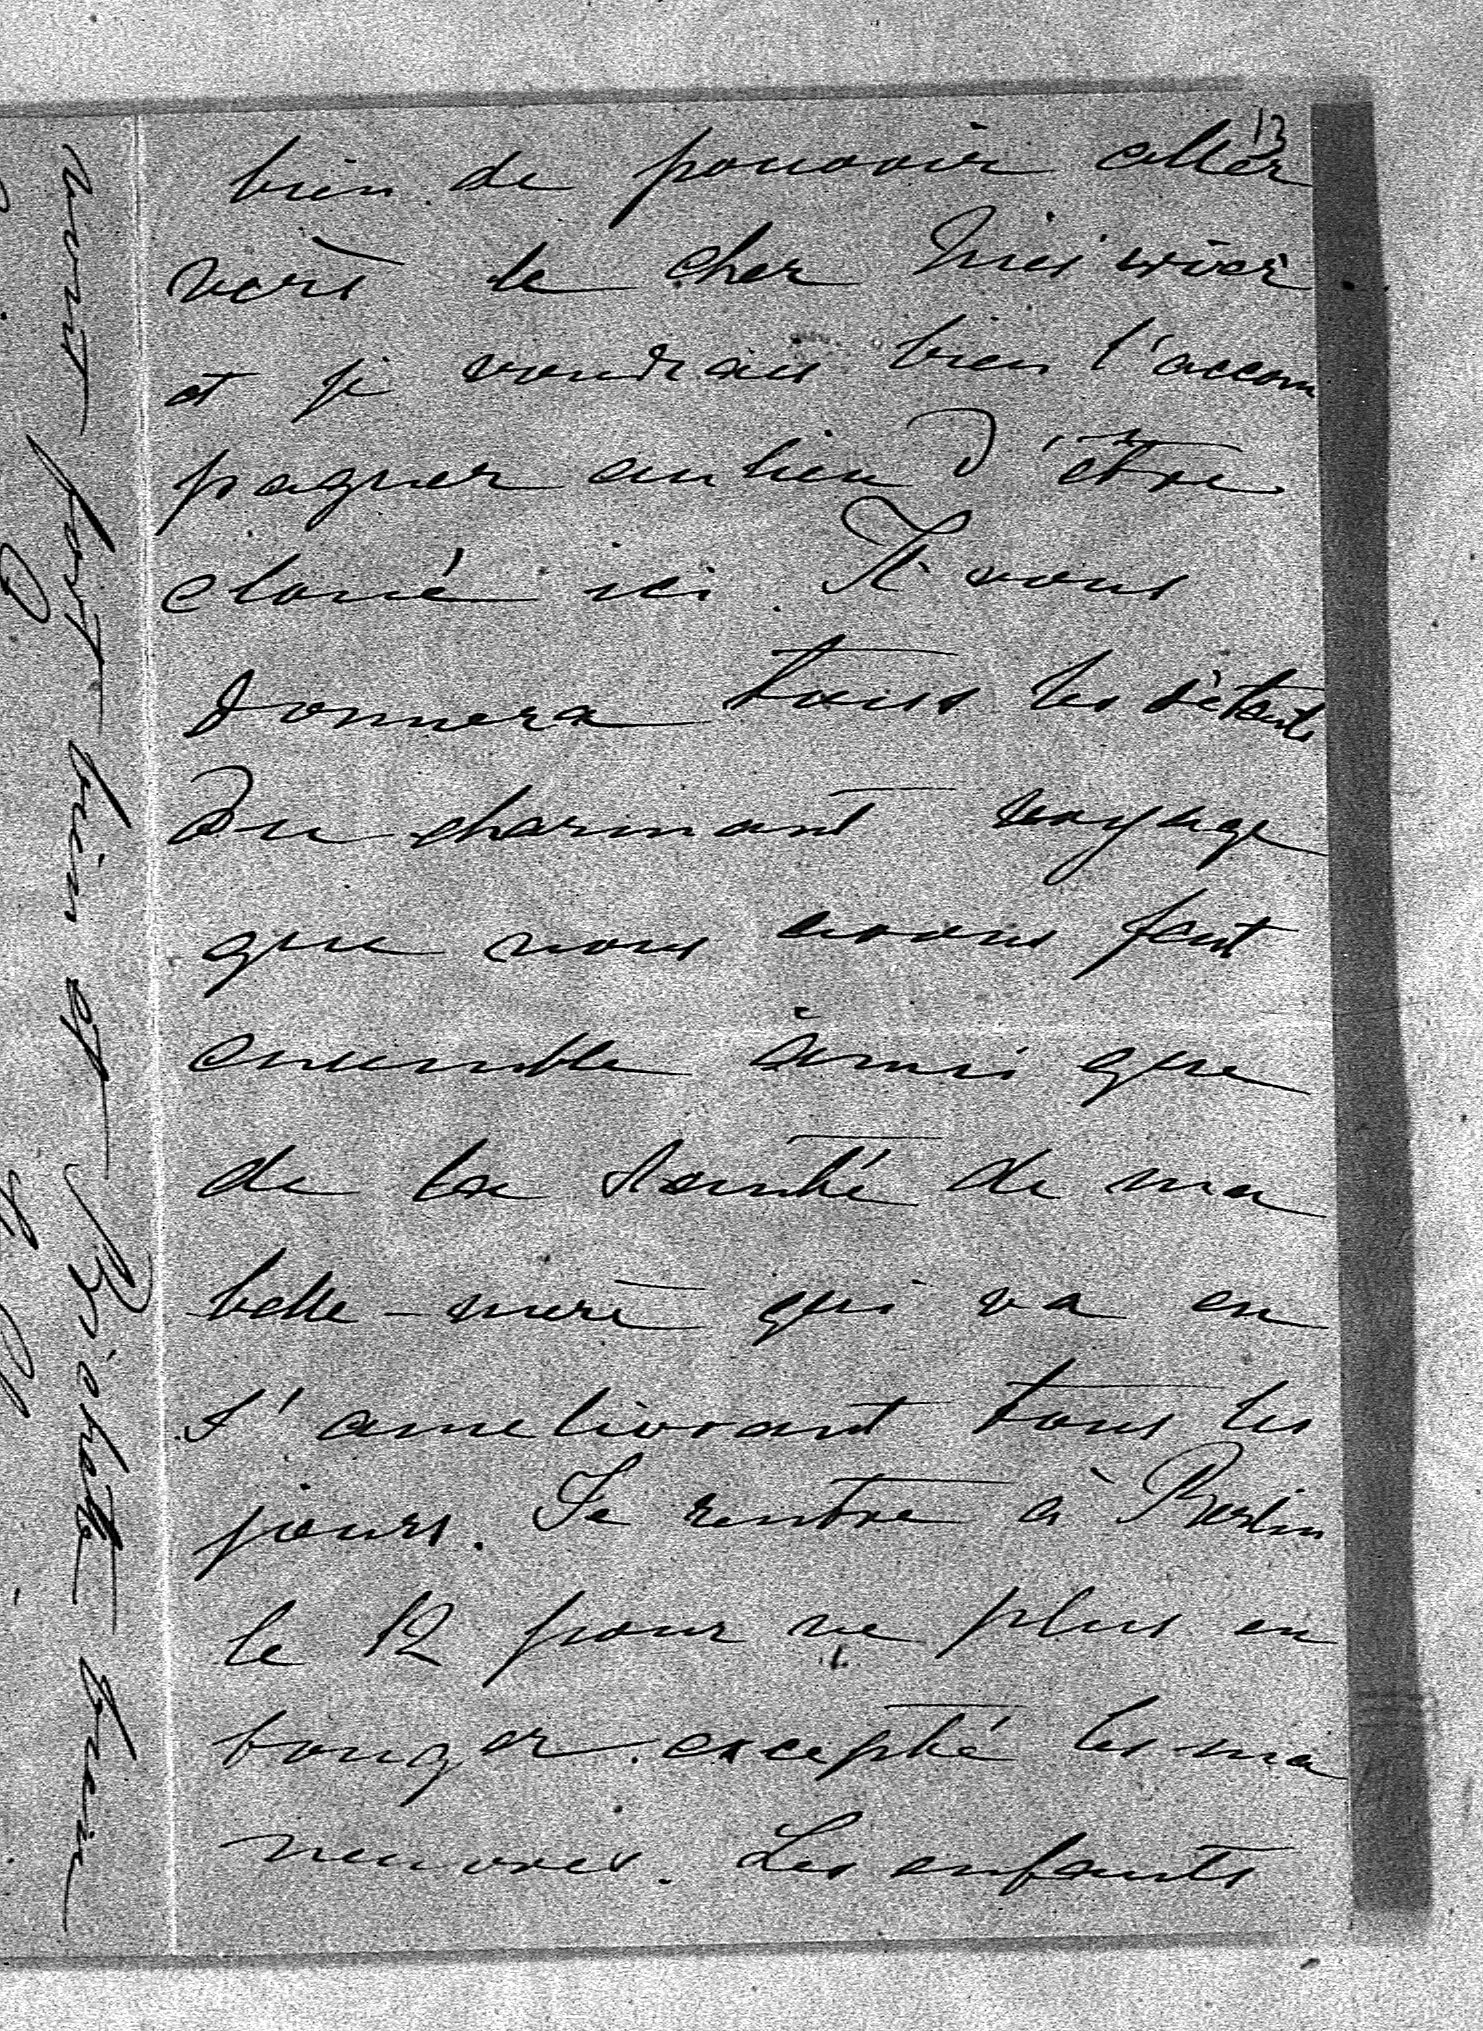 13
bien de pouvoir aller
vers le cher
et je voudrais bien l'accom
pagner au lieu d'être
cloué ici. Il vous
donnera tous les détails
du charmant voyage
que nous avons fait
ensemble ainsi que
de la santé de ma
belle-mère qui va en
s'ameliorant tous les
jours. Je rentre à Berlin
le 12 pour ne plus en
bouger excepté les ma
neuvres. Les enfants
vont fort bien et